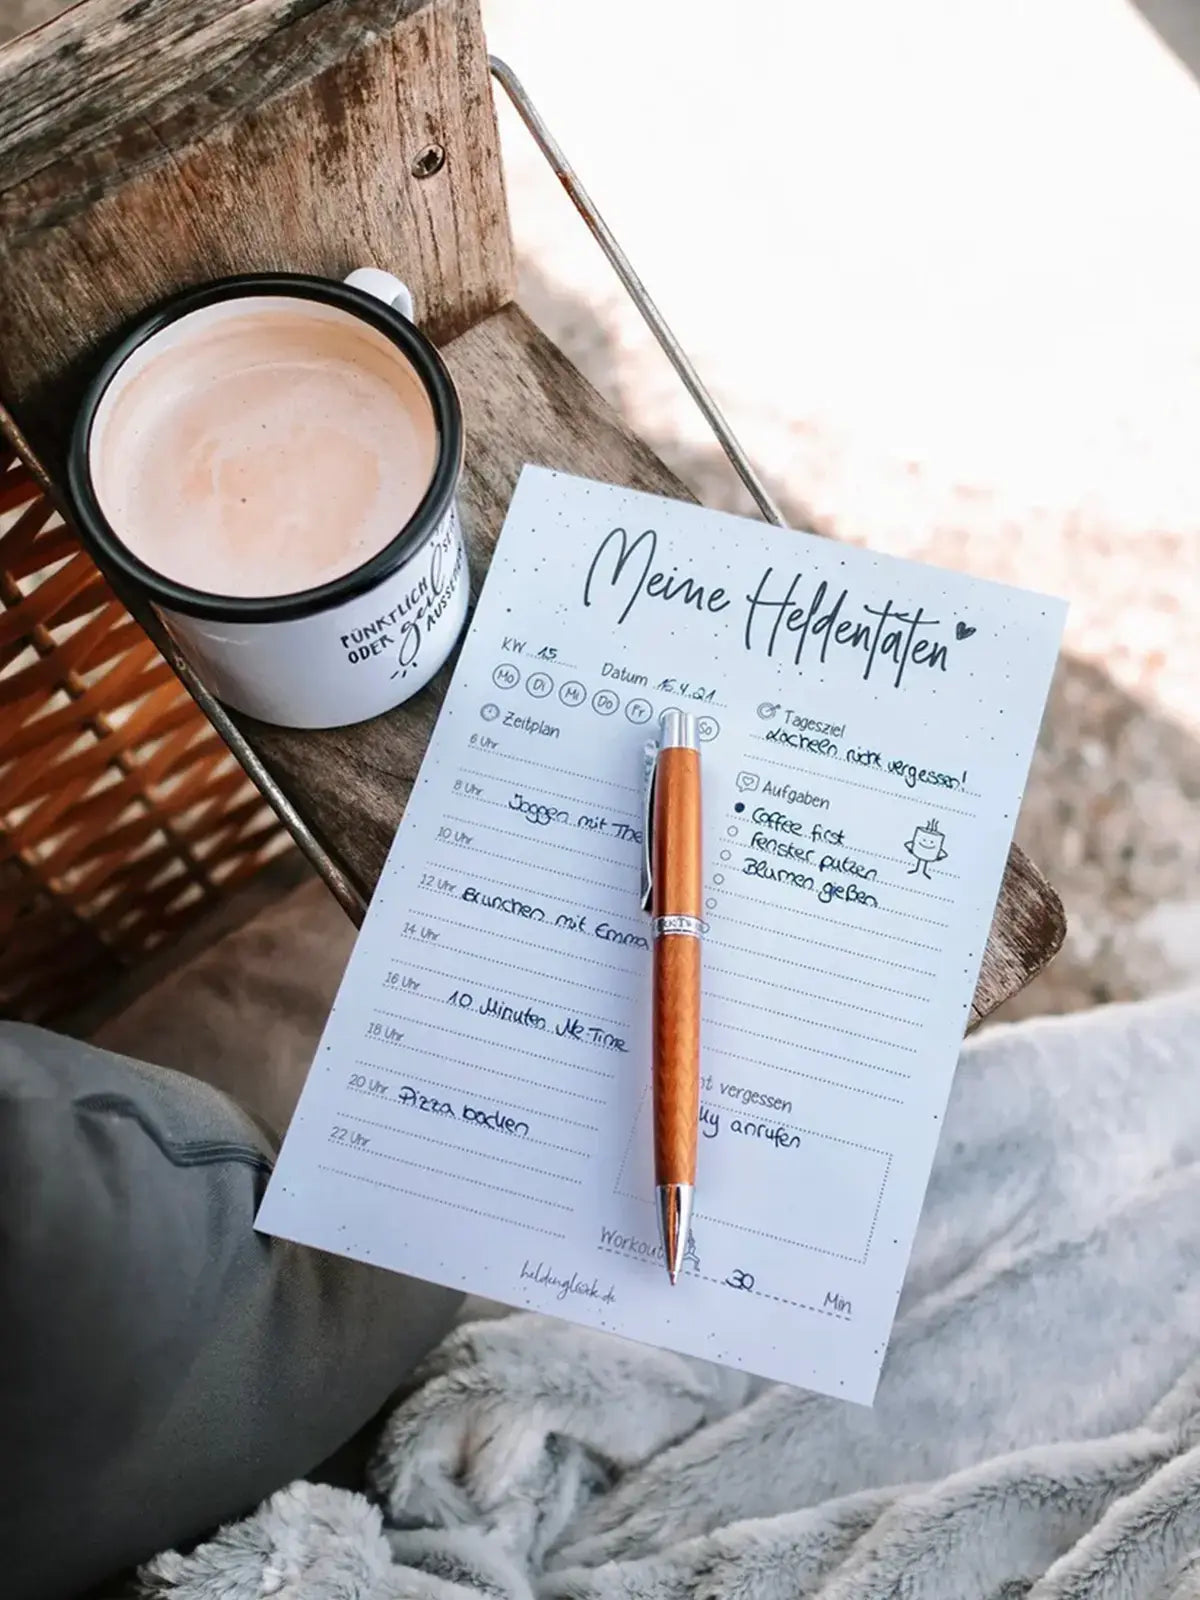 PÜNKTLICH
ODER geil
AUSSEHEN
Meine Heldentaten
KW 15 Datum 15.4.21
Mo Di Mi Do Fr So
Zeitplan
6 Uhr
8 Uhr Joggen mit
10 Uhr
12 Uhr Brunchen mit Emma
14 Uhr
16 Uhr 10 Minuten Me-Time
18 Uhr
20 Uhr Pizza backen
22 Uhr
Tagesziel
Lächeln nicht vergessen!
Aufgaben
Coffee first
Fenster putzen
Blumen gießen
vergessen
anrufen
Workout 30 Min
heldenglück.de